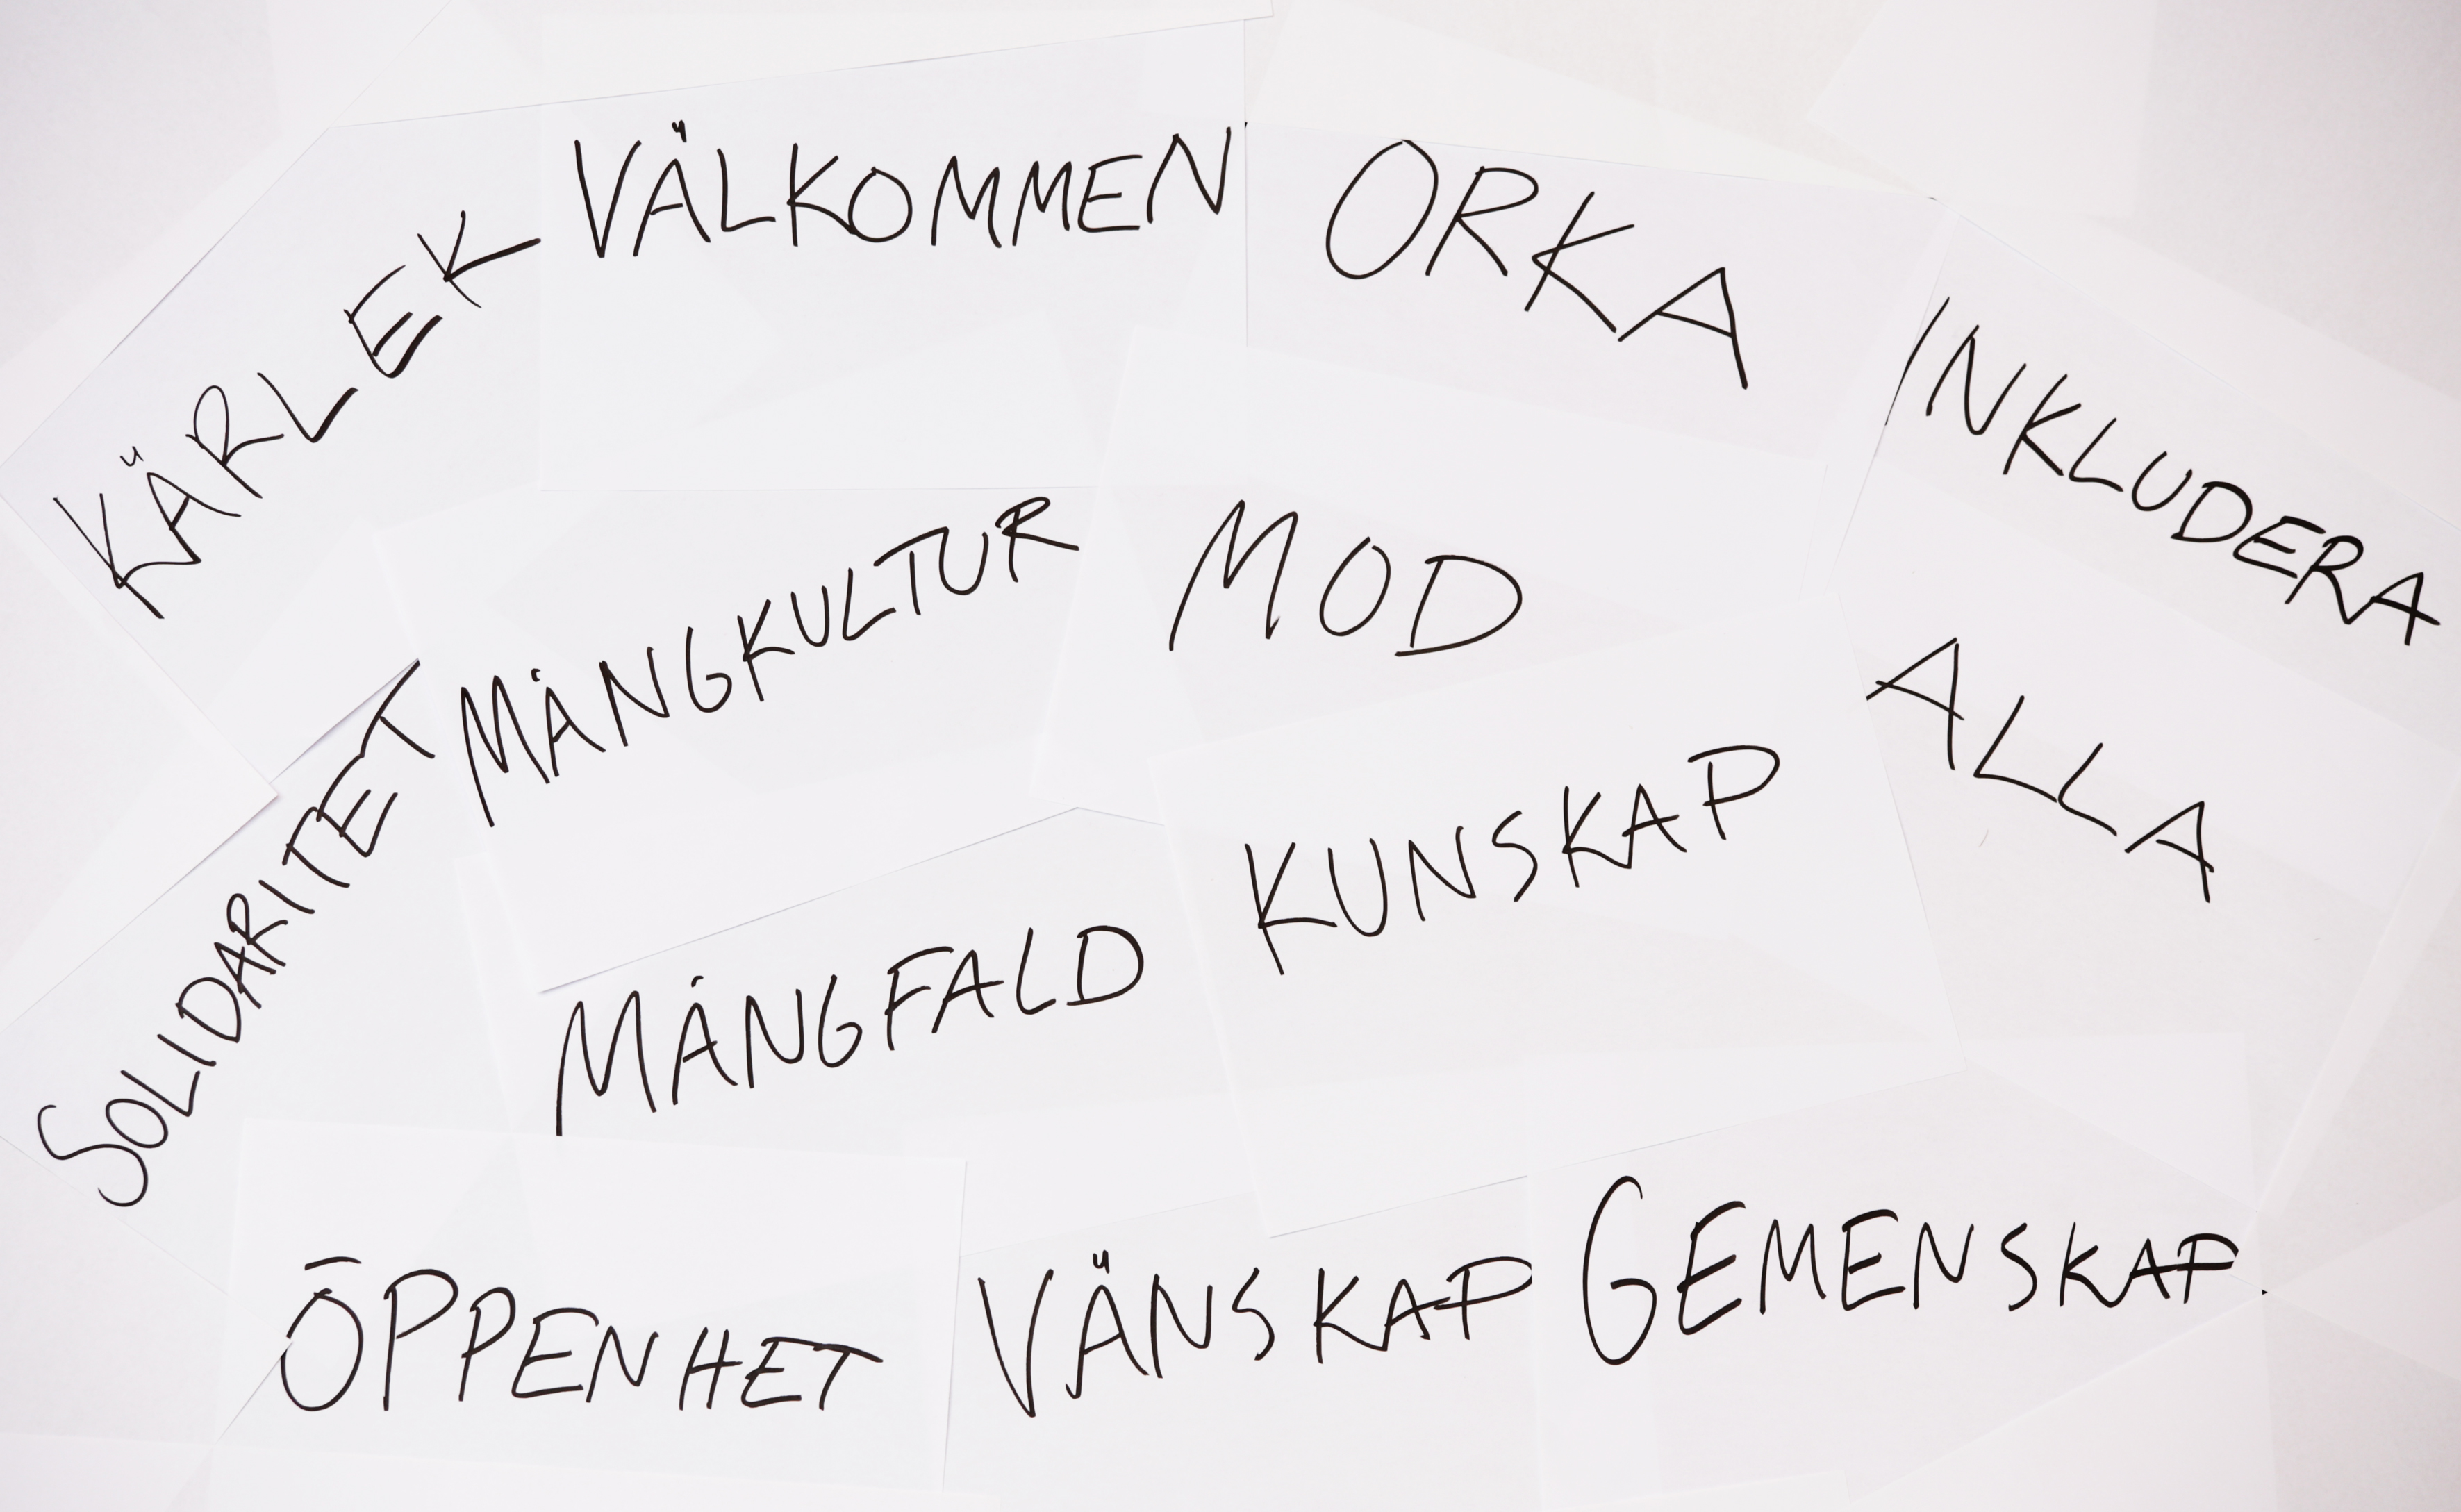 KÄRLEK
VÄLKOMMEN
ORKA
INKLUDERA
MÅNGKULTUR
MOD
ALLA
SOLIDARITET
KUNSKAP
MÅNGFALD
ÖPPENHET
VÄNSKAP
GEMENSKAP